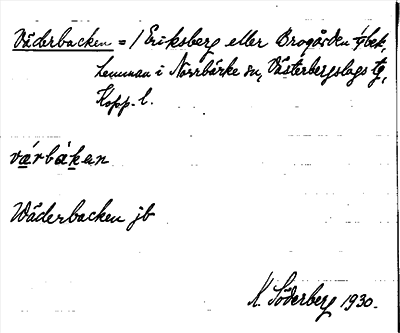 Väderbacken = / Eriksberg eller Brogården tgbek,
hemman i Norrbärke sn, Västerbergslags tg,
Kopp. l.
várbàkan
Wäderbacken jb
K. Söderberg 1930.